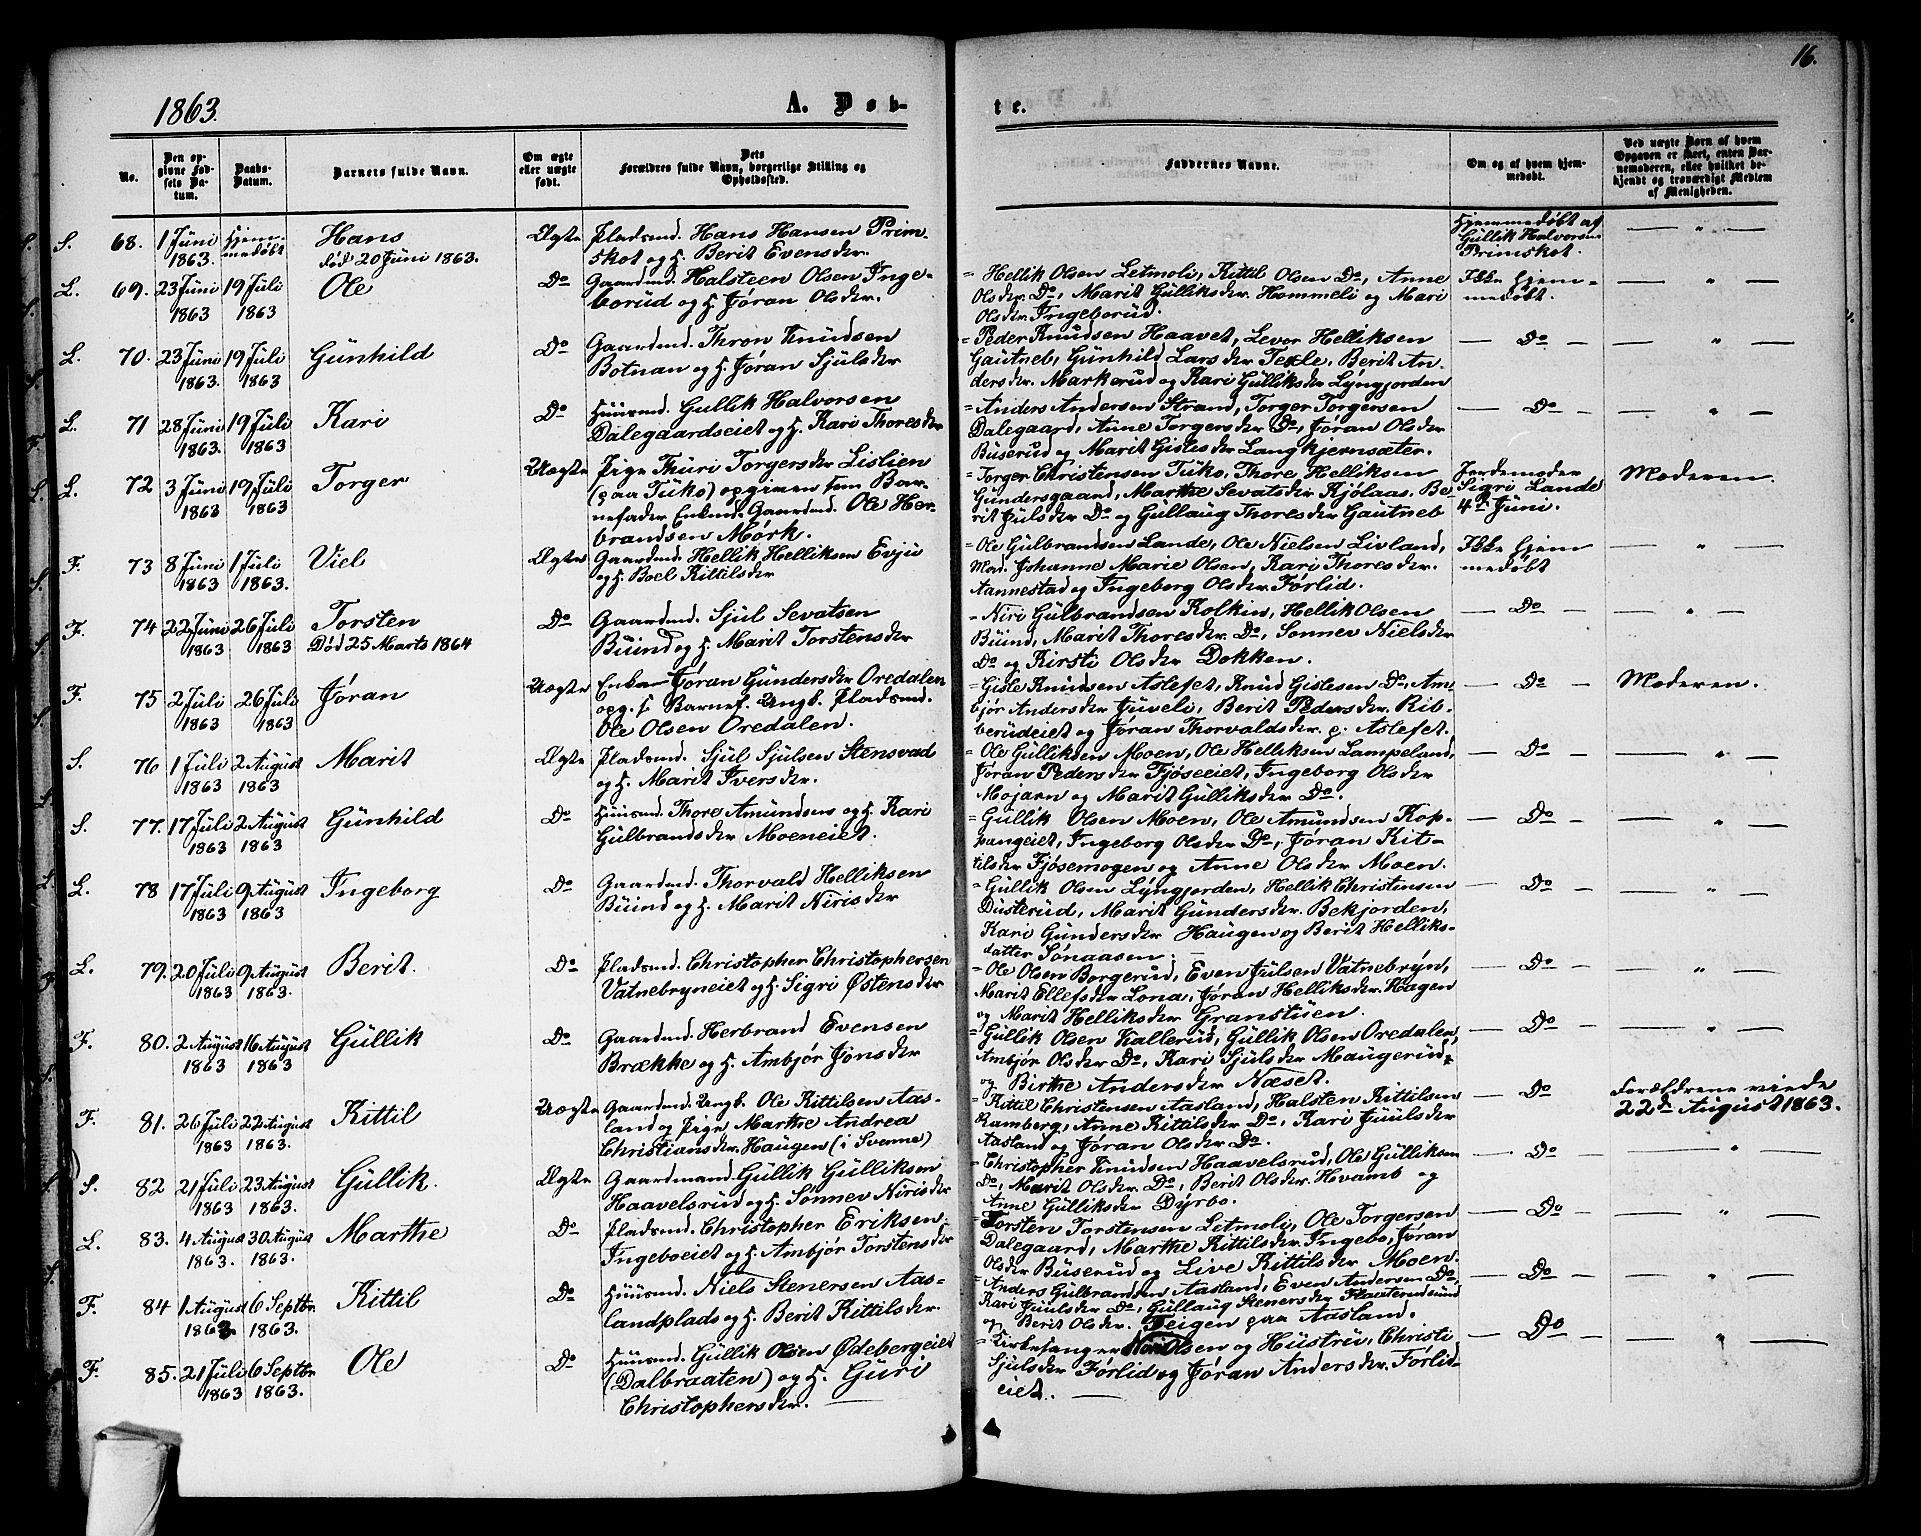 16.
1863.
A. Døb-
te.
No.
Den opgivne Fødsels Datum.
Daabs-Datum.
Barnets fulde Navn.
Om ægte eller uægte født.
Dets Forældres fulde Navn, borgerlige Stilling og Opholdssted.
Faddernes Navne.
Om og af hvem hjemmedøbt.
Ved uægte Børn af hvem Opgaven er skeet, enten Barnemoderen, eller hvilket bekjendt og troværdigt Medlem af Menigheden.
S. 68. 1 Juni 1863. Hjemmedøbt Hans død 20 Juni 1863. Ægte Pladsmd. Hans Hansen Prim-
skot og H. Berit Evensdtr.
Hjemmedøbt af
Gullik Halvorsen
Primskot.
L. 69. 23 Juni 1863 19 Juli 1863 Ole Do Gaardmd. Halsteen Olsen Inge-
borud og H. Jøran Olsdtr.
= Hellik Olsen Letmoli, Kittil Olsen Do, Anne
Olsdtr. Do, Marit Gulliksdtr. Hommeli og Mari
Olsdtr. Ingeborud.
Ikke hjem-
medøbt.
L. 70. 23 Juni 1863. 19 Juli 1863 Gunhild Do Gaardmd. Thron Knudsen
Botnan og H. Jøran Sjulsdtr
= Peder Knudsen Haavet, Levor Helliksen
Gautneb, Gunhild Larsdtr Texle, Berit An-
dersdtr. Markerud og Kari Gulliksdtr Lyngjorden
Do
L. 71 28 Juni 1863. 19 Juli 1863 Kari Do Huusmd. Gullik Halvorsen
Dalegaardseiet og H. Kari Thoresdtr
= Anders Andersen Strand, Torger Torgersen
Dalegaard, Anne Torgersdtr Do, Jøran Olsdtr
Buserud og Marit Gislesdtr Langkjernsæter.
Do
L. 72 3 Juni 1863 19 Juli 1863 Torger Uægte Pige Thuri Torgersdtr Lislien
(paa Tuko) opgiven som Bar-
nefader Enkmd. Gaardmd. Ole Her-
brandsen Mørk.
= Torger Christensen Tuko, Thore Helliksen
Gundersgaard, Marthe Sevatsdtr Kjølaas. Be-
rit Julsdtr Do og Gullaug Thoresdtr Gautneb
Jordemoder
Sigri Lande
4de Juni.
Moderen.
F. 73 8 Juni 1863 1 Juli 1863. Viel Ægte Gaardmd. Hellik Helliksen Evju
og H. Boel Kittilsdtr
= Ole Gulbrandsen Lande, Ole Nielsen Livland,
Mad. Johanne Marie Olsen, Kari Thoresdtr.
Aannestad og Ingeborg Olsdtr Førlid.
Ikke hjem
medøbt
F. 74 22 Juni 1863 26 Juli 1863 Torsten Død 25 Marts 1864 Do Gaardmd. Sjul Sevatsen
Buind og H. Marit Torstensdtr
= Niri Gulbrandsen Kolkin, Hellik Olsen
Buind, Marit Thoresdtr. Do, Sonnev Nielsdtr
Do og Kirsti Olsdtr Dokken.
Do
F. 75 2 Juli 1863 26 Juli 1863 Jøran Uægte Enke Jøran Gundersdtr Oredalen
opg. s. Barnef. Ungk. Pladsmd.
Ole Olsen Oredalen.
= Gisle Knudsen Aslefet, Knud Gislesen Do, Am-
bjør Andersdtr Juveli, Berit Pedersdtr. Rib-
berudeiet og Jøran Thorvaldsdtr. p. Aslefet.
Do
Moderen.
S. 76 1 Juli 1863 2 August 1863 Marit Ægte Pladsmd. Sjul Sjulsen Stensvad
og H. Marit Iversdtr.
= Ole Gulliksen Moen, Ole Helliksen Lampeland,
Jøran Pedersdtr Fjøseeiet, Ingeborg Olsdtr
Mojarn og Marit Gulliksdtr. Do.
Do
S. 77. 17 Juli 1863 2 August 1863 Gunhild Do Huusmd. Thore Amundsens og H. Kari
Gulbrandsdtr Moeneiet.
= Gullik Olsen Moen, Ole Amundsen Kop-
pangeiet, Ingeborg Olsdtr Do, Jøran Kit-
tilsdtr Fjøsemogen og Anne Olsdtr Moen.
Do
L. 78 17 Juli 1863 9 August 1863 Ingeborg Do Gaardmd. Thorvald Helliksen
Buind og H. Marit Nirisdtr
= Gullik Olsen Lyngjorden, Hellik Christensen
Dusterud, Marit Gundersdtr. Bekjorden,
Kari Gundersdtr Haugen og Berit Helliks-
datter Sønaasen.
Do
L. 79. 20 Juli 1863 9 August 1863. Berit. Do Pladsmd. Christopher Christophersen
Vatnebryneiet og H. Sigri Østensdtr
= Ole Olsen Borgerud, Even Julsen Vatnebryn,
Marit Ellefsdtr Lona, Jøran Helliksdtr. Hagen
og Marit Helliksdtr Granstuen.
Do
F. 80. 2 August 1863 16 August 1863 Gullik Do Gaardmd. Herbrand Evensen
Brække og H. Ambjør Jonsdtr
= Gullik Olsen Kallerud, Gullik Olsen Oredalen,
Ambjør Olsdtr Do, Kari Sjulsdtr Maugerud,
og Birthe Andersdtr Næset.
Do
F. 81. 26 Juli 1863 22 August 1863. Kittil Uægte Gaardmd. Ungk. Ole Kittilsen Aas-
land og Pige Marthe Andrea
Christiansdtr. Haugen (i Svenne)
= Kittil Christensen Aasland, Halsten Kittilsen
Ramberg, Anne Kittilsdtr Do, Kari Juulsdtr
Aasland og Jøran Olsdtr Do.
Do
Forældrene viede
22de August 1863.
S. 82 21 Juli 1863 23 August 1863. Gullik. Ægte Gaardmand Gullik Gulliksen
Haavelsrud og H. Sønnev Nirisdtr
= Christopher Knudsen Haavelsrud, Ole Gulliksen
Do, Marit Olsdtr. Do, Berit Olsdtr. Hvamb og
Anne Gulliksdtr Dyrbo.
Do
L. 83. 4 August 1863. 30 August 1863. Marthe Do Pladsmd. Christopher Eriksen
Ingeboeiet og H. Ambjør Torstensdtr
= Torsten Torstensen Letmoli, Ole Torgersen
Dalegaard, Marthe Kittilsdtr Ingebo, Jøran
Olsdtr Buserud og Live Kittilsdtr Moen.
Do
F. 84 1 August 1863. 6 Septbr. 1863. Kittil Do Huusmd. Niels Stenersen Aas-
landplads og H. Berit Kittilsdtr.
= Anders Gulbrandsen Aasland, Even Andersen Do,
Kari Juulsdtr Do, Gullaug Stenersdtr
og Berit Olsdtr. Teigen paa Aasland.
Do
F. 85. 21 Juli 1863 6 Septbr 1863. Ole Do Huusmd. Gullik Olsen Ødebergeiet
(Dalbraaten) og H. Guri
Christophersdtr.
= Kirkesanger Niri Olsen og Hustru, Christi
Sjulsdtr Førlid og Jøran Andersdtr. Førlid-
eiet.
Do